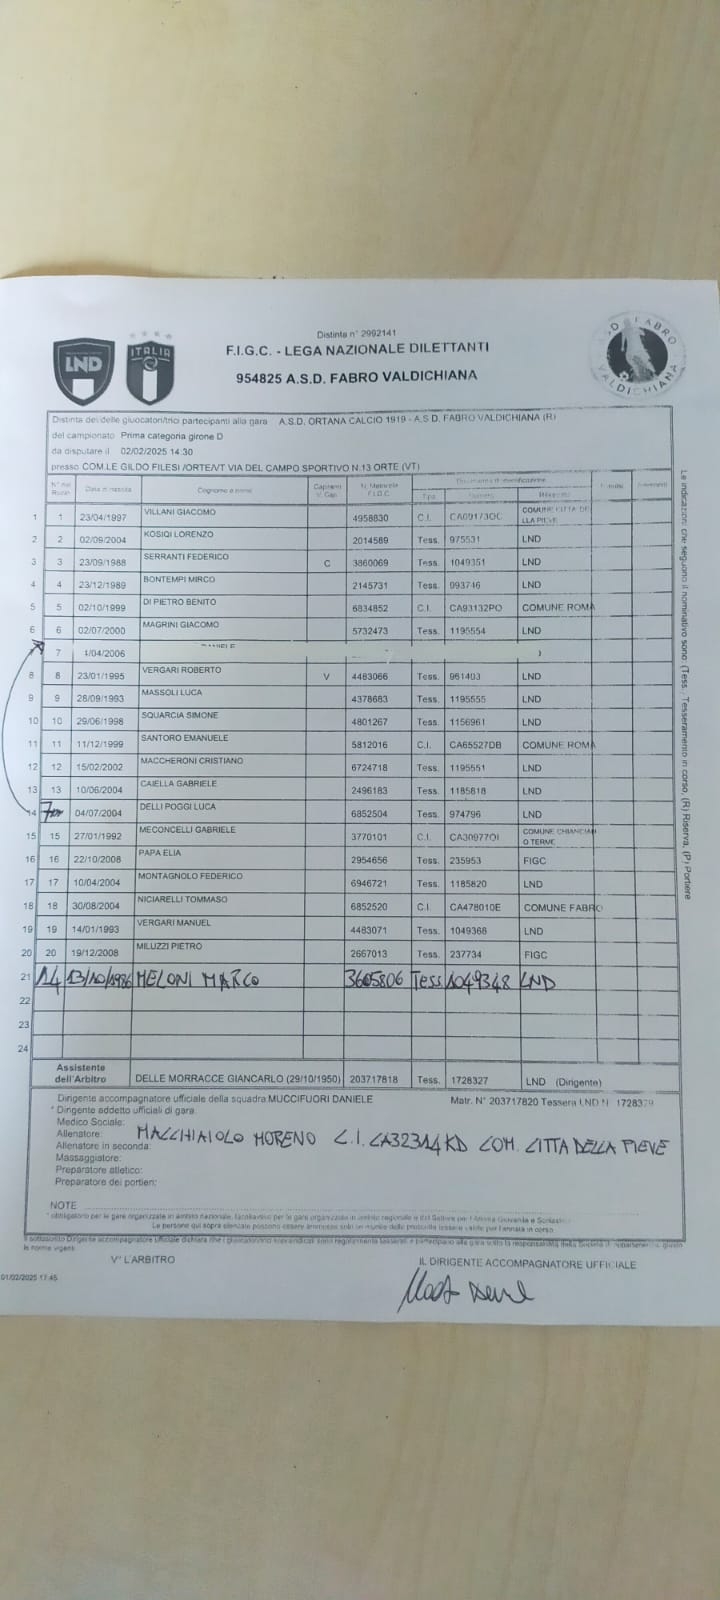 Distinta n° 2992141
F.I.G.C. - LEGA NAZIONALE DILETTANTI
954825 A.S.D. FABRO VALDICHIANA
LND
ITALIA
Distinta dei delle giuocatori/trici partecipanti alla gara A.S.D. ORTANA CALCIO 1919 - A.S.D. FABRO VALDICHIANA (R)
del campionato Prima categoria girone D
da disputare il 02/02/2025 14:30
presso COM.LE GILDO FILESI /ORTE/VT VIA DEL CAMPO SPORTIVO N.13 ORTE (VT)
Data di nascita Cognome e nome N. Matricola F.I.G.C. Documento di identificazione Tipo Numero Rilasciato
1 1 23/04/1997 VILLANI GIACOMO 4958830 C.I. COMUNE CITTA DELLA PIEVE
2 2 02/09/2004 KOSIQI LORENZO 2014589 Tess. 975531 LND
3 3 23/09/1988 SERRANTI FEDERICO C 3860069 Tess. 1049351 LND
4 4 23/12/1989 BONTEMPI MIRCO 2145731 Tess. 993746 LND
5 5 02/10/1999 DI PIETRO BENITO 6834852 C.I. CA93132PO COMUNE ROMA
6 6 02/07/2000 MAGRINI GIACOMO 5732473 Tess. 1195554 LND
7 /04/2006
8 8 23/01/1995 VERGARI ROBERTO V 4483066 Tess. 961403 LND
9 9 28/09/1993 MASSOLI LUCA 4378683 Tess. 1195555 LND
10 10 29/06/1998 SQUARCIA SIMONE 4801267 Tess. 1156961 LND
11 11 11/12/1999 SANTORO EMANUELE 5812016 C.I. CA65527DB COMUNE ROMA
12 12 15/02/2002 MACCHERONI CRISTIANO 6724718 Tess. 1195551 LND
13 13 10/06/2004 CAIELLA GABRIELE 2496183 Tess. 1185818 LND
14 7 04/07/2004 DELLI POGGI LUCA 6852504 Tess. 974796 LND
15 15 27/01/1992 MECONCELLI GABRIELE 3770101 C.I. CA30977OI COMUNE CHIANCIANO TERME
16 16 22/10/2008 PAPA ELIA 2954656 Tess. 235953 FIGC
17 17 10/04/2004 MONTAGNOLO FEDERICO 6946721 Tess. 1185820 LND
18 18 30/08/2004 NICIARELLI TOMMASO 6852520 C.I. CA478010E COMUNE FABRO
19 19 14/01/1993 VERGARI MANUEL 4483071 Tess. 1049368 LND
20 20 19/12/2008 MILUZZI PIETRO 2667013 Tess. 237734 FIGC
21 14 13/10/1986 MELONI MARCO 3605806 Tess 1049348 LND
22
23
24
Assistente dell'Arbitro DELLE MORRACCE GIANCARLO (29/10/1950) 203717818 Tess. 1728327 LND (Dirigente)
Dirigente accompagnatore ufficiale della squadra: MUCCIFUORI DANIELE Matr. N° 203717820 Tessera LND N. 1728329
* Dirigente addetto ufficiali di gara:
Medico Sociale:
Allenatore: MACCHIAIOLO MORENO C.I. CA32314KD COM. CITTA DELLA PIEVE
Allenatore in seconda:
Massaggiatore:
Preparatore atletico:
Preparatore dei portieri:
NOTE
V° L'ARBITRO IL DIRIGENTE ACCOMPAGNATORE UFFICIALE
01/02/2025 17:45
Le indicazioni che seguono il nominativo sono: (Tess.: Tesseramento in corso, (R) Riserva, (P) Portiere